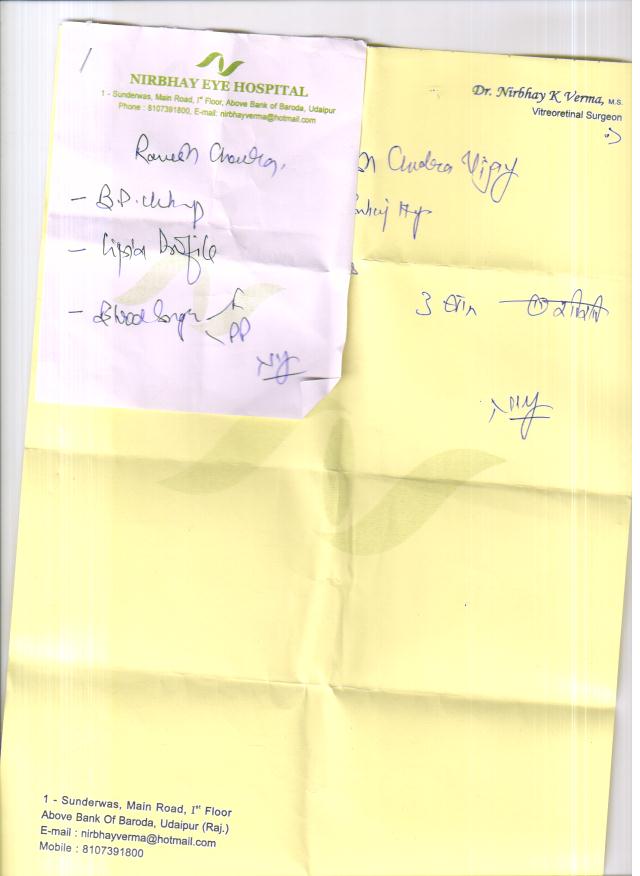 NIRBHAY EYE HOSPITAL
1 - Sunderwas, Main Road, Ist Floor, Above Bank of Baroda, Udaipur
Phone : 8107391800, E-mail: nirbhayverma@hotmail.com
Ramesh Chandra,
- B.P. chkup
- Lipid Profile
- Blood Sugar F
PP
Dr. Nirbhay K Verma, M.S.
Vitreoretinal Surgeon
Chndra Vijay
3
1 - Sunderwas, Main Road, Ist Floor
Above Bank Of Baroda, Udaipur (Raj.)
E-mail : nirbhayverma@hotmail.com
Mobile : 8107391800